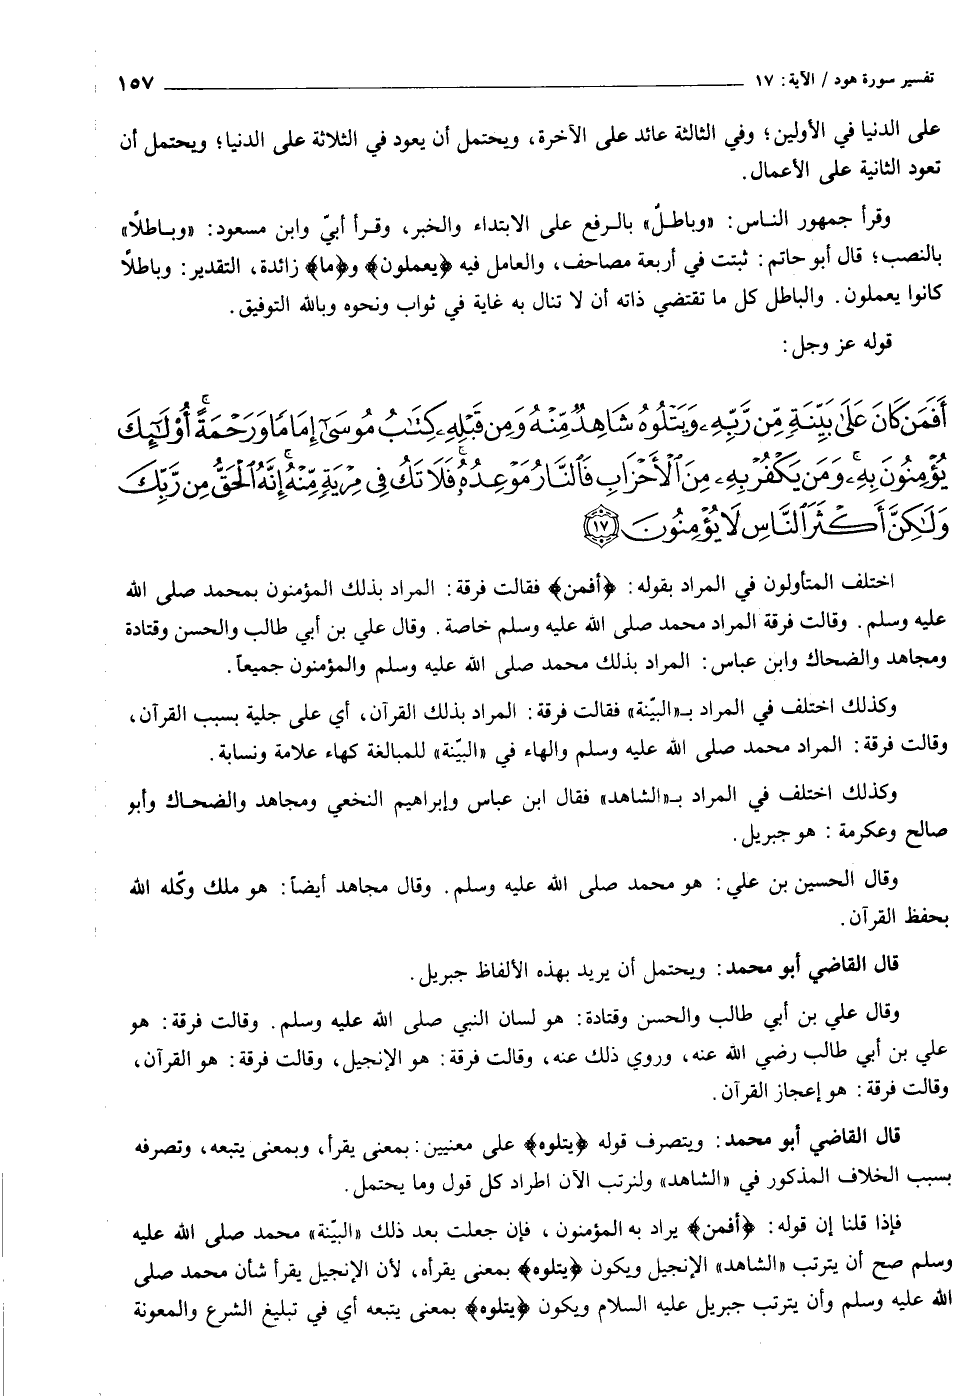 تفسير سورة هود / الآية: ١٧ ١٥٧
على الدنيا في الأولين؛ وفي الثالثة عائد على الآخرة، ويحتمل أن يعود في الثلاثة على الدنيا؛ ويحتمل أن
تعود الثانية على الأعمال.
وقرأ جمهور الناس: «وباطلٌ» بالرفع على الابتداء والخبر، وقرأ أبيّ وابن مسعود: «وباطلاً»
بالنصب؛ قال أبو حاتم: ثبتت في أربعة مصاحف، والعامل فيه ﴿يعملون﴾ و﴿ما﴾ زائدة، التقدير: وباطلاً
كانوا يعملون. والباطل كل ما تقتضي ذاته أن لا تنال به غاية في ثواب ونحوه وبالله التوفيق.
قوله عز وجل:
أَفَمَن كَانَ عَلَىٰ بَيِّنَةٍ مِّن رَّبِّهِۦ وَيَتْلُوهُ شَاهِدٌ مِّنْهُ وَمِن قَبْلِهِۦ كِتَٰبُ مُوسَىٰٓ إِمَامًا وَرَحْمَةً ۚ أُو۟لَٰٓئِكَ
يُؤْمِنُونَ بِهِۦ ۚ وَمَن يَكْفُرْ بِهِۦ مِنَ ٱلْأَحْزَابِ فَٱلنَّارُ مَوْعِدُهُۥ ۚ فَلَا تَكُ فِى مِرْيَةٍ مِّنْهُ ۚ إِنَّهُ ٱلْحَقُّ مِن رَّبِّكَ
وَلَٰكِنَّ أَكْثَرَ ٱلنَّاسِ لَا يُؤْمِنُونَ ١٧
اختلف المتأولون في المراد بقوله: ﴿أفمن﴾ فقالت فرقة: المراد بذلك المؤمنون بمحمد صلى الله
عليه وسلم. وقالت فرقة المراد محمد صلى الله عليه وسلم خاصة. وقال علي بن أبي طالب والحسن وقتادة
ومجاهد والضحاك وابن عباس: المراد بذلك محمد صلى الله عليه وسلم والمؤمنون جميعاً.
وكذلك اختلف في المراد بـ«البيّنة» فقالت فرقة: المراد بذلك القرآن، أي على جلية بسبب القرآن،
وقالت فرقة: المراد محمد صلى الله عليه وسلم والهاء في «البيّنة» للمبالغة كهاء علامة ونسابة.
وكذلك اختلف في المراد بـ«الشاهد» فقال ابن عباس وإبراهيم النخعي ومجاهد والضحاك وأبو
صالح وعكرمة: هو جبريل.
وقال الحسين بن علي: هو محمد صلى الله عليه وسلم. وقال مجاهد أيضاً: هو ملك وكّله الله
بحفظ القرآن.
قال القاضي أبو محمد: ويحتمل أن يريد بهذه الألفاظ جبريل.
وقال علي بن أبي طالب والحسن وقتادة: هو لسان النبي صلى الله عليه وسلم. وقالت فرقة: هو
علي بن أبي طالب رضي الله عنه، وروي ذلك عنه، وقالت فرقة: هو الإنجيل، وقالت فرقة: هو القرآن،
وقالت فرقة: هو إعجاز القرآن.
قال القاضي أبو محمد: ويتصرف قوله ﴿يتلوه﴾ على معنيين: بمعنى يقرأ، وبمعنى يتبعه، وتصرفه
بسبب الخلاف المذكور في «الشاهد» ولنرتب الآن اطراد كل قول وما يحتمل.
فإذا قلنا إن قوله: ﴿أفمن﴾ يراد به المؤمنون، فإن جعلت بعد ذلك «البيّنة» محمد صلى الله عليه
وسلم صح أن يترتب «الشاهد» الإنجيل ويكون ﴿يتلوه﴾ بمعنى يقرأه، لأن الإنجيل يقرأ شأن محمد صلى
الله عليه وسلم وأن يترتب جبريل عليه السلام ويكون ﴿يتلوه﴾ بمعنى يتبعه أي في تبليغ الشرع والمعونة